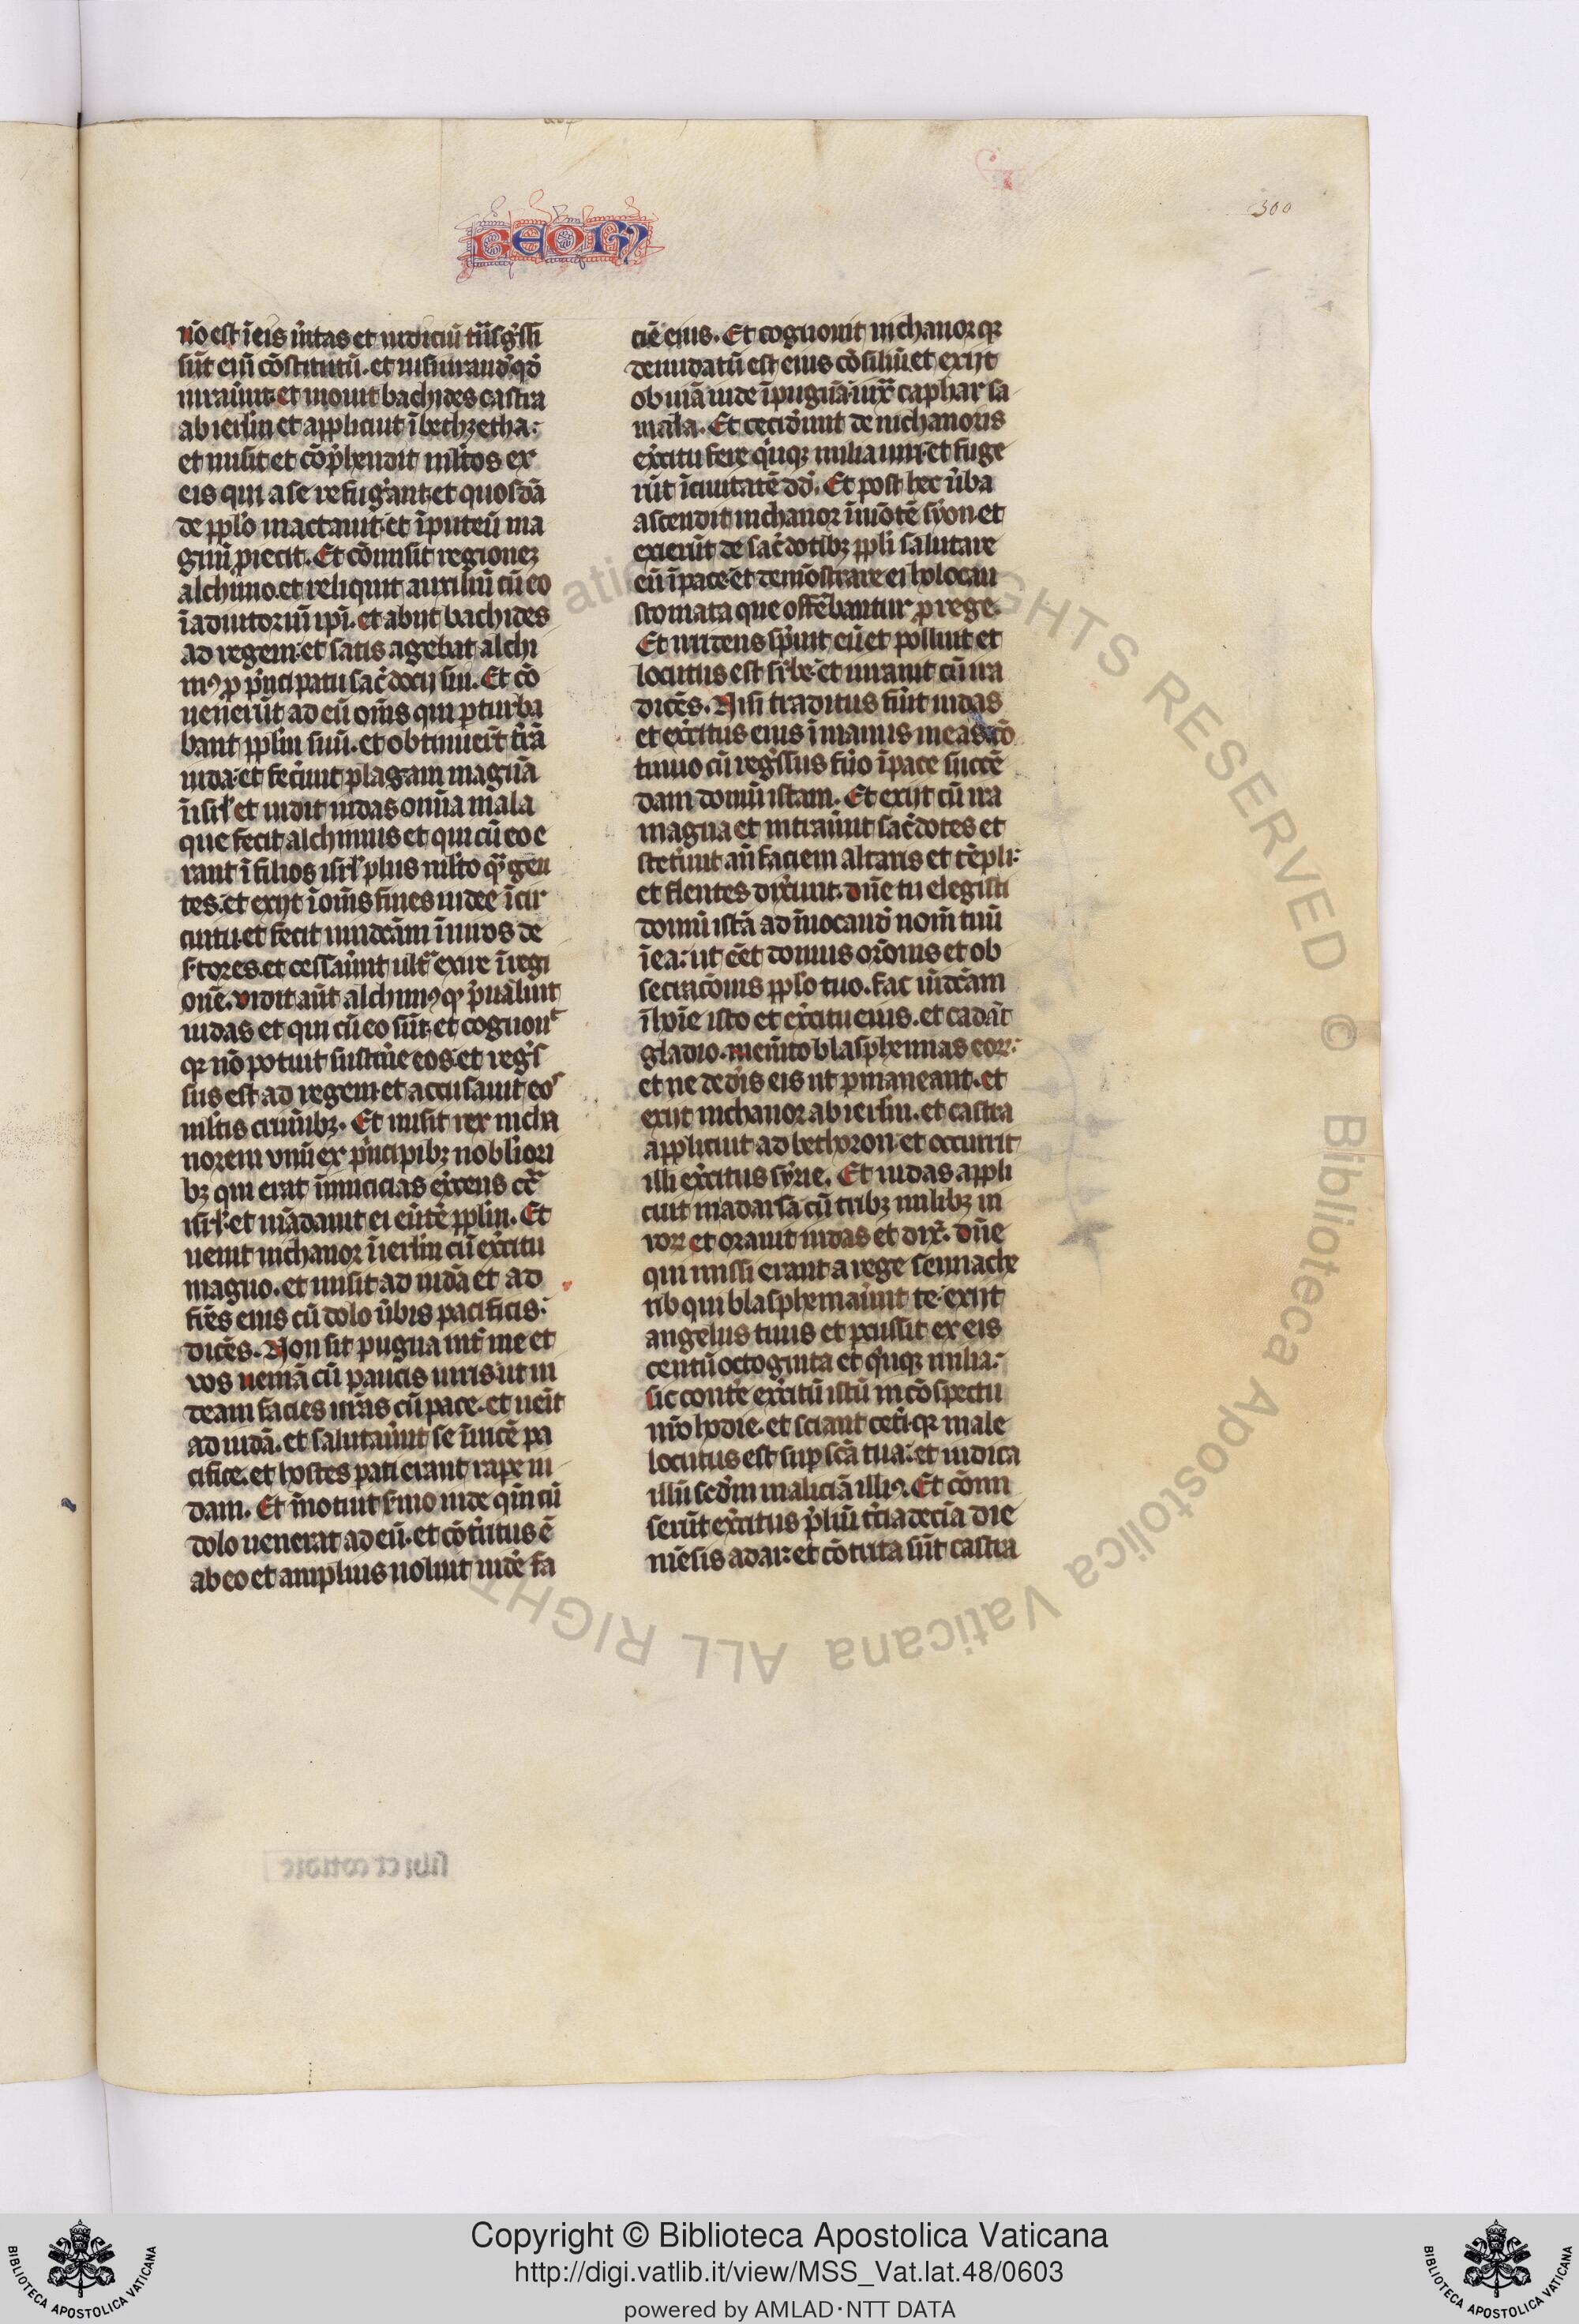 300
BEORUM
nō est ī eis ũitas et iudiciū tñsg̃ssi
sūt eni cōstitutū. et iusiurand̾ qd̾
iurauı̄t. et mouit bachides castra
ab ierlm̄ et applicuit ī bethzetha:
et misit et cōp̃hendit m̃ltos ex
eis qui a se refug̃ant. et quosdā
de pplo mactauit. et ī puteū ma
gnū p̃iecit. Et cōmisit regionez
alchimo. et reliquit auxiliū cū eo
ī adiutoriū ip̄i. et abiit bachides
ad regem. et satis agebat alchi
mꝰ p p̃ncipatu sac̃docij sui. Et cō
uenerūt ad eū om̄s qui pturba
bant pplm̄ suū. et obtinuer̄t t̃rā
iuda. et fec̃unt plagam magnā
ī isrl̄. et uidit iudas om̄ia mala
que fecit alchimus et qui cū eo e
rant ī filios isrl̄ plus m̃lto q̃ gen
tes. et exijt ī om̄s fines iudee ī cir
cuitu. et fecit uindc̄am ī uiros de
s̃tores. et cessaũnt ult̃ exire ī regi
onē. vidit aūt alchimꝰ qꝫ p̃ualuit
iudas et qui cū eo sūt. et cognouᵗ
qꝛ nō potuit sustin̄e eos. et reg̃s
sus est ad regem. et accusauit eoˢ
m̃ltis criminibꝫ. Et misit rex nicha
norem vnū ex p̃ncipibꝫ nobl̄iori
bꝫ qui erat inimicicias ex̃cens ct̃
isrl̄. et mādauit ei eūt̃e pplm̄. Et
uenit nichanor ī ierlm̄ cū ex̃citu
magno. et misit ad iudā et ad
fr̄es eius cū dolo ũbis pacificis:
dicēs. Non sit pugna int̃ me et
vos ueniā cū paucis uiris ut ui
deam facies ur̄as cū pace. et uēit
ad iudā. et salutaũnt se īuicē pa
cifice. et hostes pati erant rape iu
dam. Et īnotuit s̃mo iude qm̄ cū
dolo uenerat ad eū. et cōt̃ritus ē
ab eo et amplius noluit uid̃e fa
ciē eius. Et cognouit nichanor qꝛ
denudatū est eius cōsiliū. et exijt
obuiā iude ī pugnā. iux̃ caphar sa
mala. Et cecid̃unt de nichanoris
ex̃citu fere q̃nqꝫ milia uiri. et fuge
rūt ī ciuitatē dd̾. Et post hec ũba
ascendit nichanor ī mōtē syon. et
exierūt de sac̃dotibꝫ ppli salutare
eū ī pace. et demōstrare ei holocau
stomata que offerebantur p rege.
Et irridens sp̃uit eū et polluit et
locutus est supbe. et iurauit cū ira
dicēs. Nisi traditus fũit iudas
et ex̃citus eius ī manus meas cō
tinuo cū reg̃ssus fũo ī pace succē
dam domū istam. Et exijt cū ira
magna. et intraũnt sac̃dotes et
stet̃unt an̄ faciem altaris et tēpli:
et flentes dix̃unt. dn̄e tu elegisti
domū istā ad īuocand̾ nom̄ tuū
ī ea: ut eēt domus or̄onis et ob
secrac̄onis pplo tuo. fac uīdc̄am
ī hoīe isto et ex̃citu eius. et cadāt
gladio. mem̄to blasphemias eoꝝ:
et ne ded̃is eis ut pmaneant. et
exiit nichanor ab ierlm̄. et castra
applicuit ad bethoron. et occurrit
illi ex̃citus syrie. Et iudas appli
cuit in adarsa cū tribꝫ milibꝫ ui
roꝝ. et orauit iudas et dix̃. dn̄e
qui missi erant a rege sennache
rib qui blasphemaũnt te. exijt
angelus tuus et pcussit ex eis
centū octoginta et q̃nqꝫ milia:
sic cont̃e ex̃citū istū in cōspectu
nr̄o hodie. et sciant cet̃i. qꝛ male
locutus est sup scā tua: et iudica
illū scd̾m maliciā illiꝰ. Et cōmi
serūt ex̃citus p̃liū t̃cia decīa die
mēsis adar: et cōtrita sūt castra
Copyright © Biblioteca Apostolica Vaticana
http://digi.vatlib.it/view/MSS_Vat.lat.48/0603
powered by AMLAD·NTT DATA
BIBLIOTECA APOSTOLICA VATICANA
BIBLIOTECA APOSTOLICA VATICANA
ALL RIGHTS RESERVED © Biblioteca Apostolica Vaticana ALL RIGHT